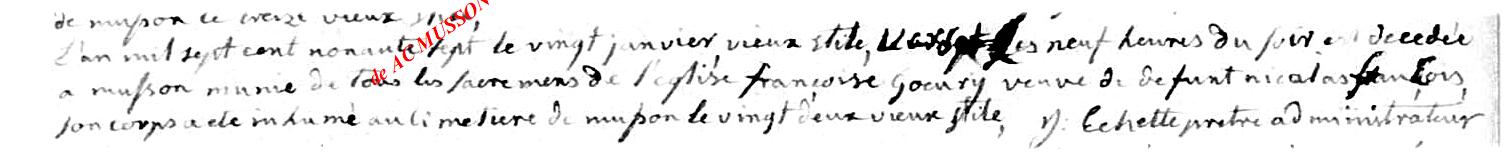 de musson le treize vieux stile,
L'an mil sept cent nonante sept le vingt janvier, vieux stile, vers les neuf heures du soir est decedée
a musson munie de tous les sacremens de l'eglise françoise Goeury veuve de defunt nicolas françois,
son corps a eté inhumé au cimetiere de musson le vingt deux vieux stile, J: Echette pretre administrateur
de AC MUSSON